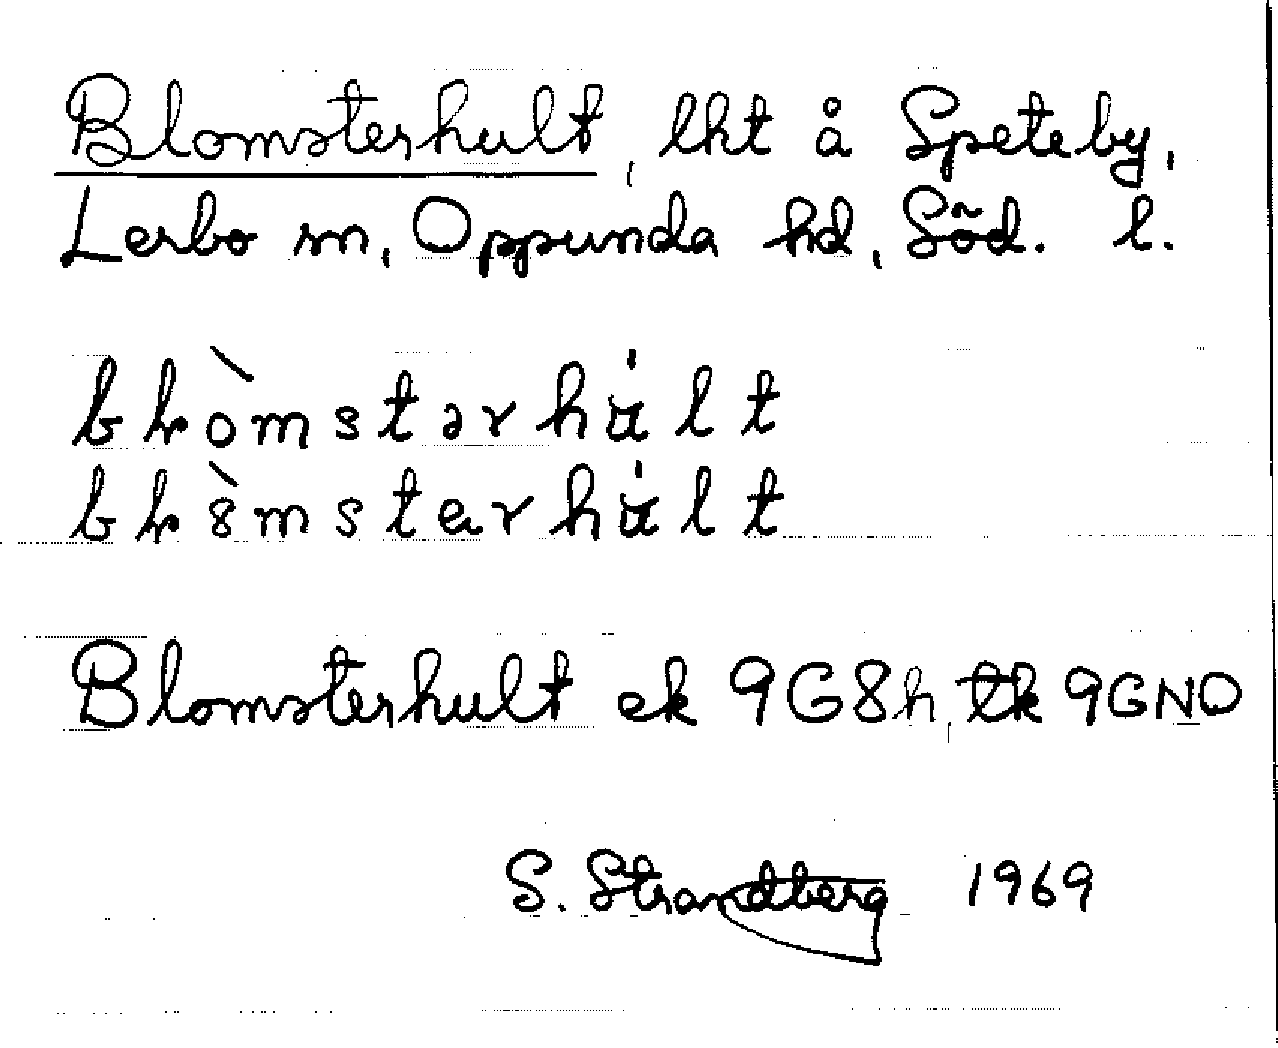 Blomsterhult, lht å Speteby,
Lerbo sn, Oppunda hd, Söd. l.
błòmstərhált
bł8̀mstərhált
Blomsterhult ek 9G8h, tk 9GNO
S. Strandberg 1969